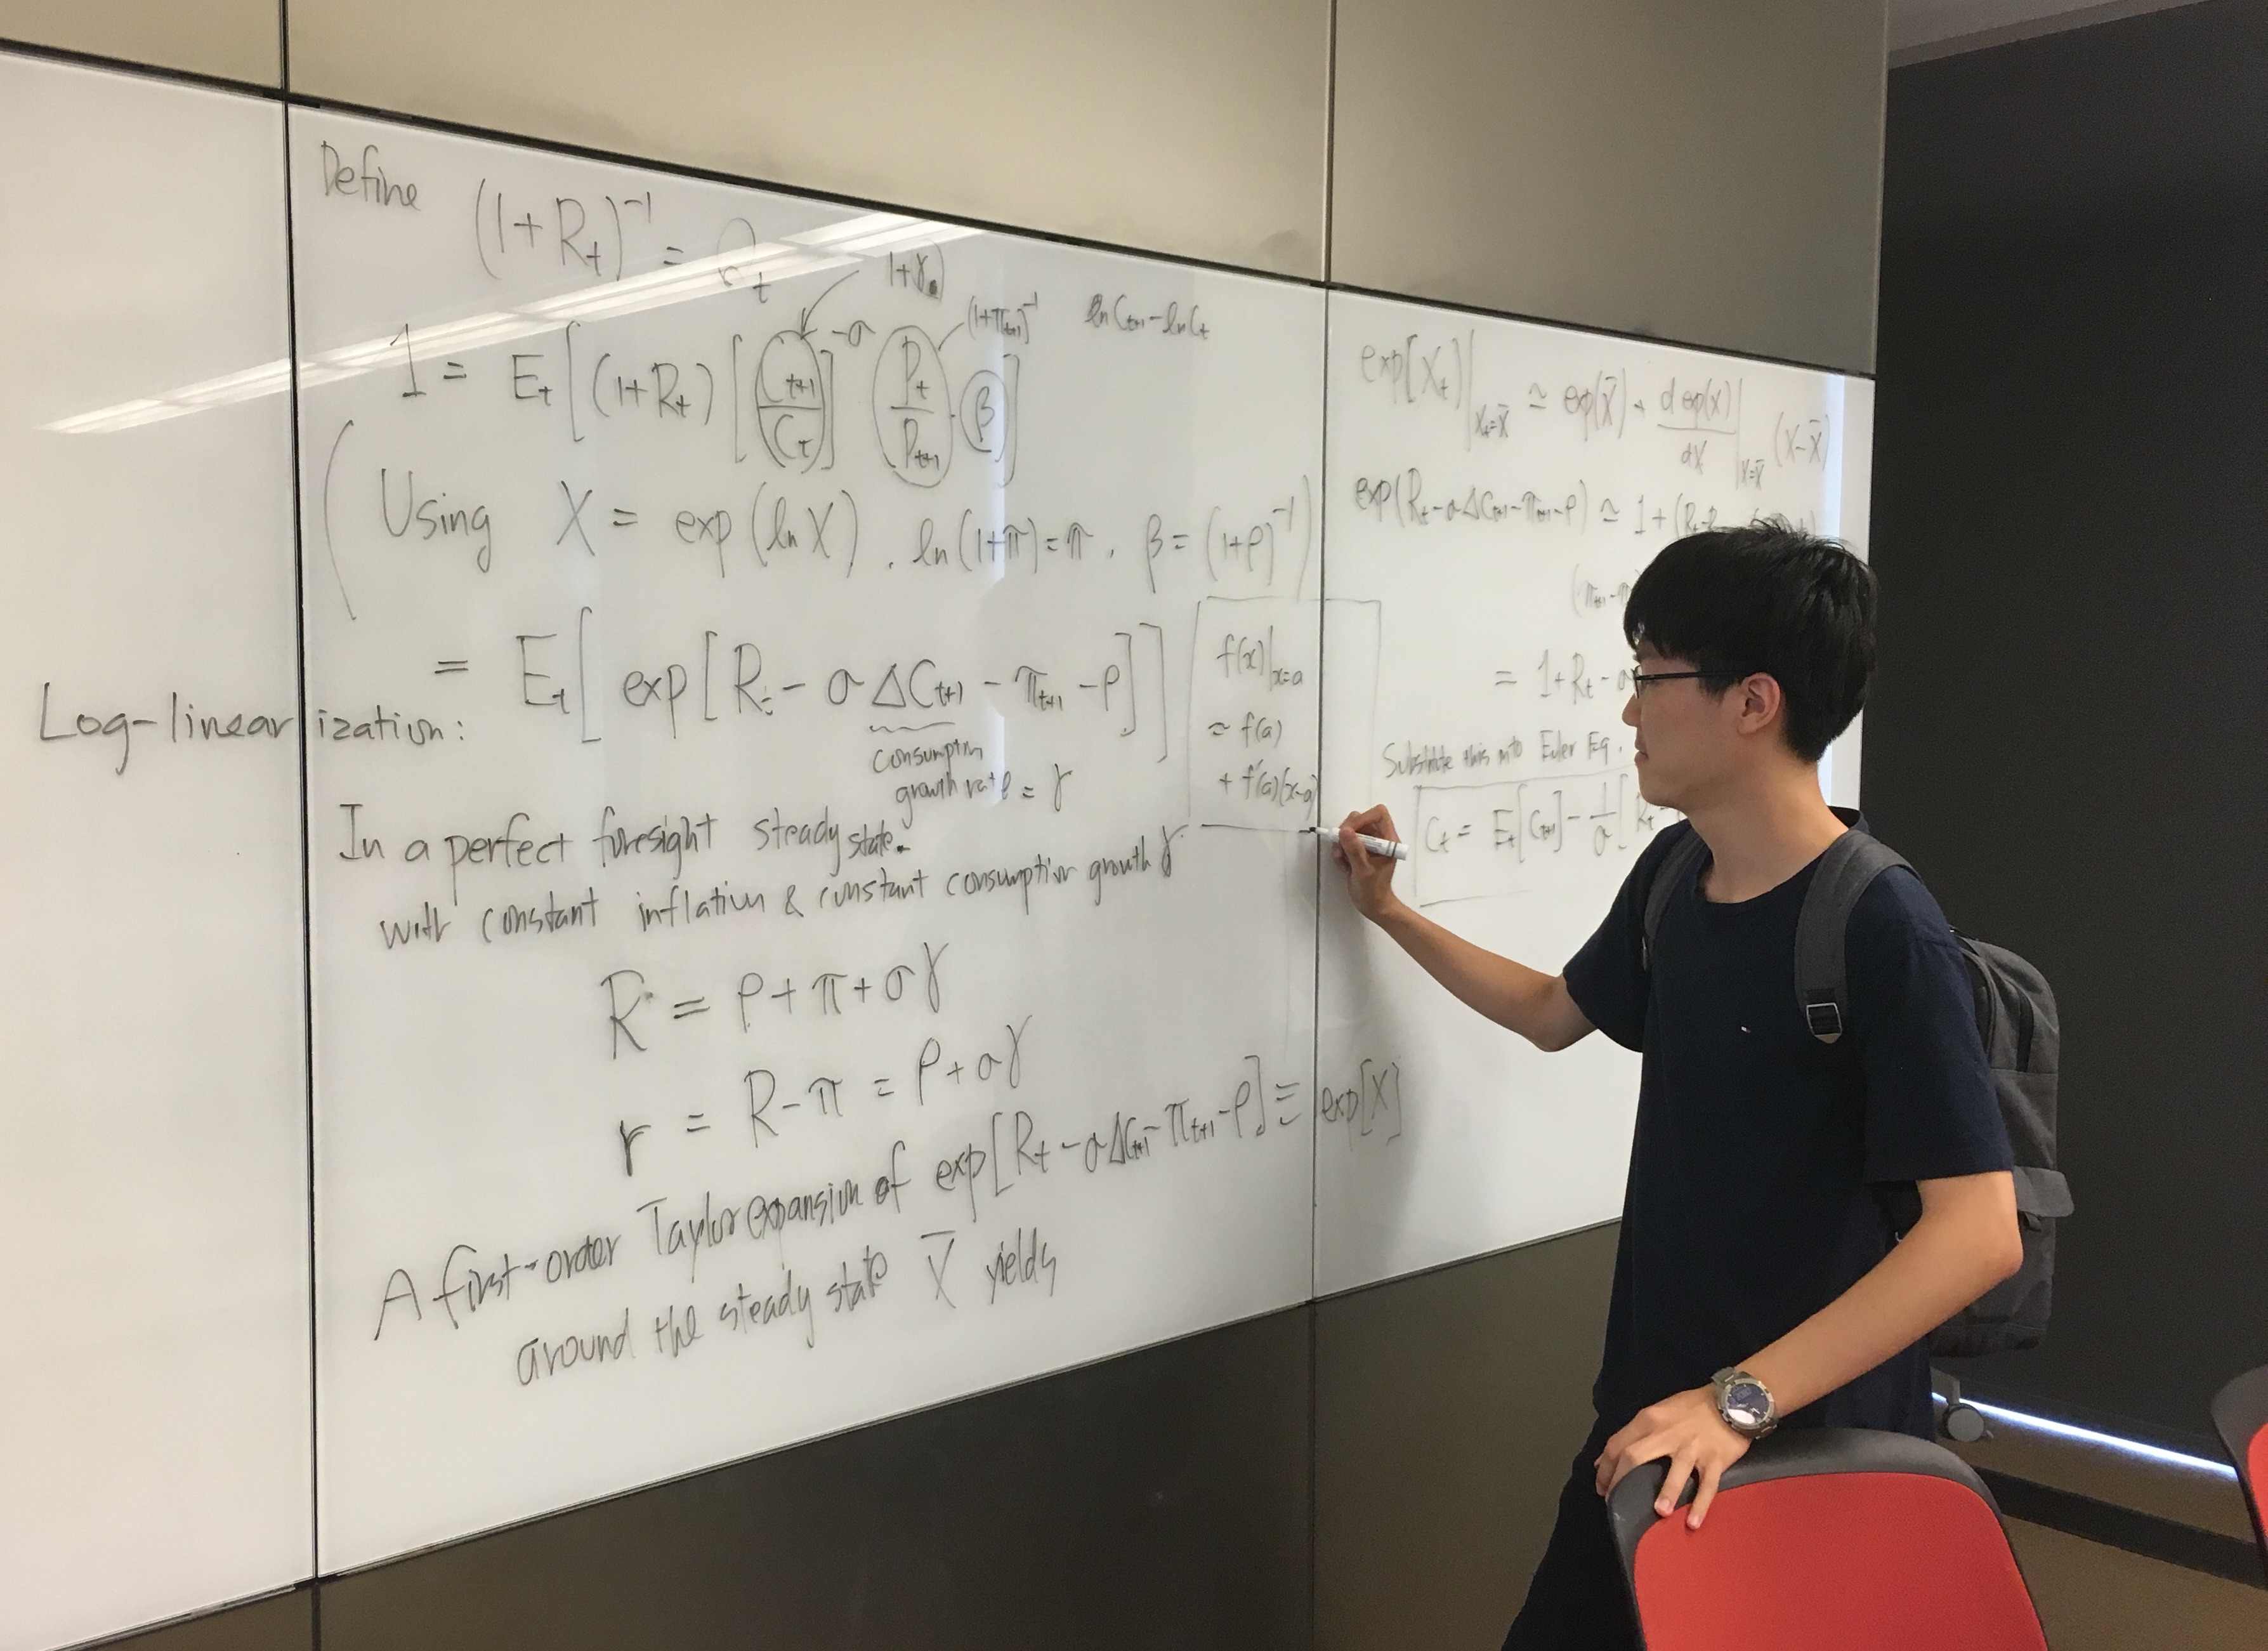 Define (1+R_t)^{-1} = Q_t
1+γ
(1+π_{t+1})^{-1}
ln C_{t+1} - ln C_t
1 = E_t[(1+R_t)[C_{t+1}/C_t]^{-σ} (P_t/P_{t+1}) · β]
(Using X = exp(ln X), ln(1+π)=π, β=(1+ρ)^{-1})
= E_t[exp[R_t - σ ΔC_{t+1} - π_{t+1} - ρ]]
Log-linearization:
consumption
growth rate = γ
f(x)|_{x=a}
≃ f(a)
+ f'(a)(x-a)
In a perfect foresight steady state.
with constant inflation & constant consumption growth γ
R = ρ + π + σγ
r = R - π = ρ + σγ
A first-order Taylor expansion of exp[R_t - σΔC_{t+1} - π_{t+1} - ρ] ≡ exp[X]
around the steady state X̄ yields
exp[X_t]|_{X_t=X̄} ≃ exp(X̄) + d exp(X)/dX|_{X=X̄} (X-X̄)
exp(R_t - σΔC_{t+1} - π_{t+1} - ρ) ≃ 1 + (R_t-R
(π_{t+1}-π
= 1+R_t - σ
Substitute this into Euler Eq.
C_t = E_t[C_{t+1}] - 1/σ [R_t -